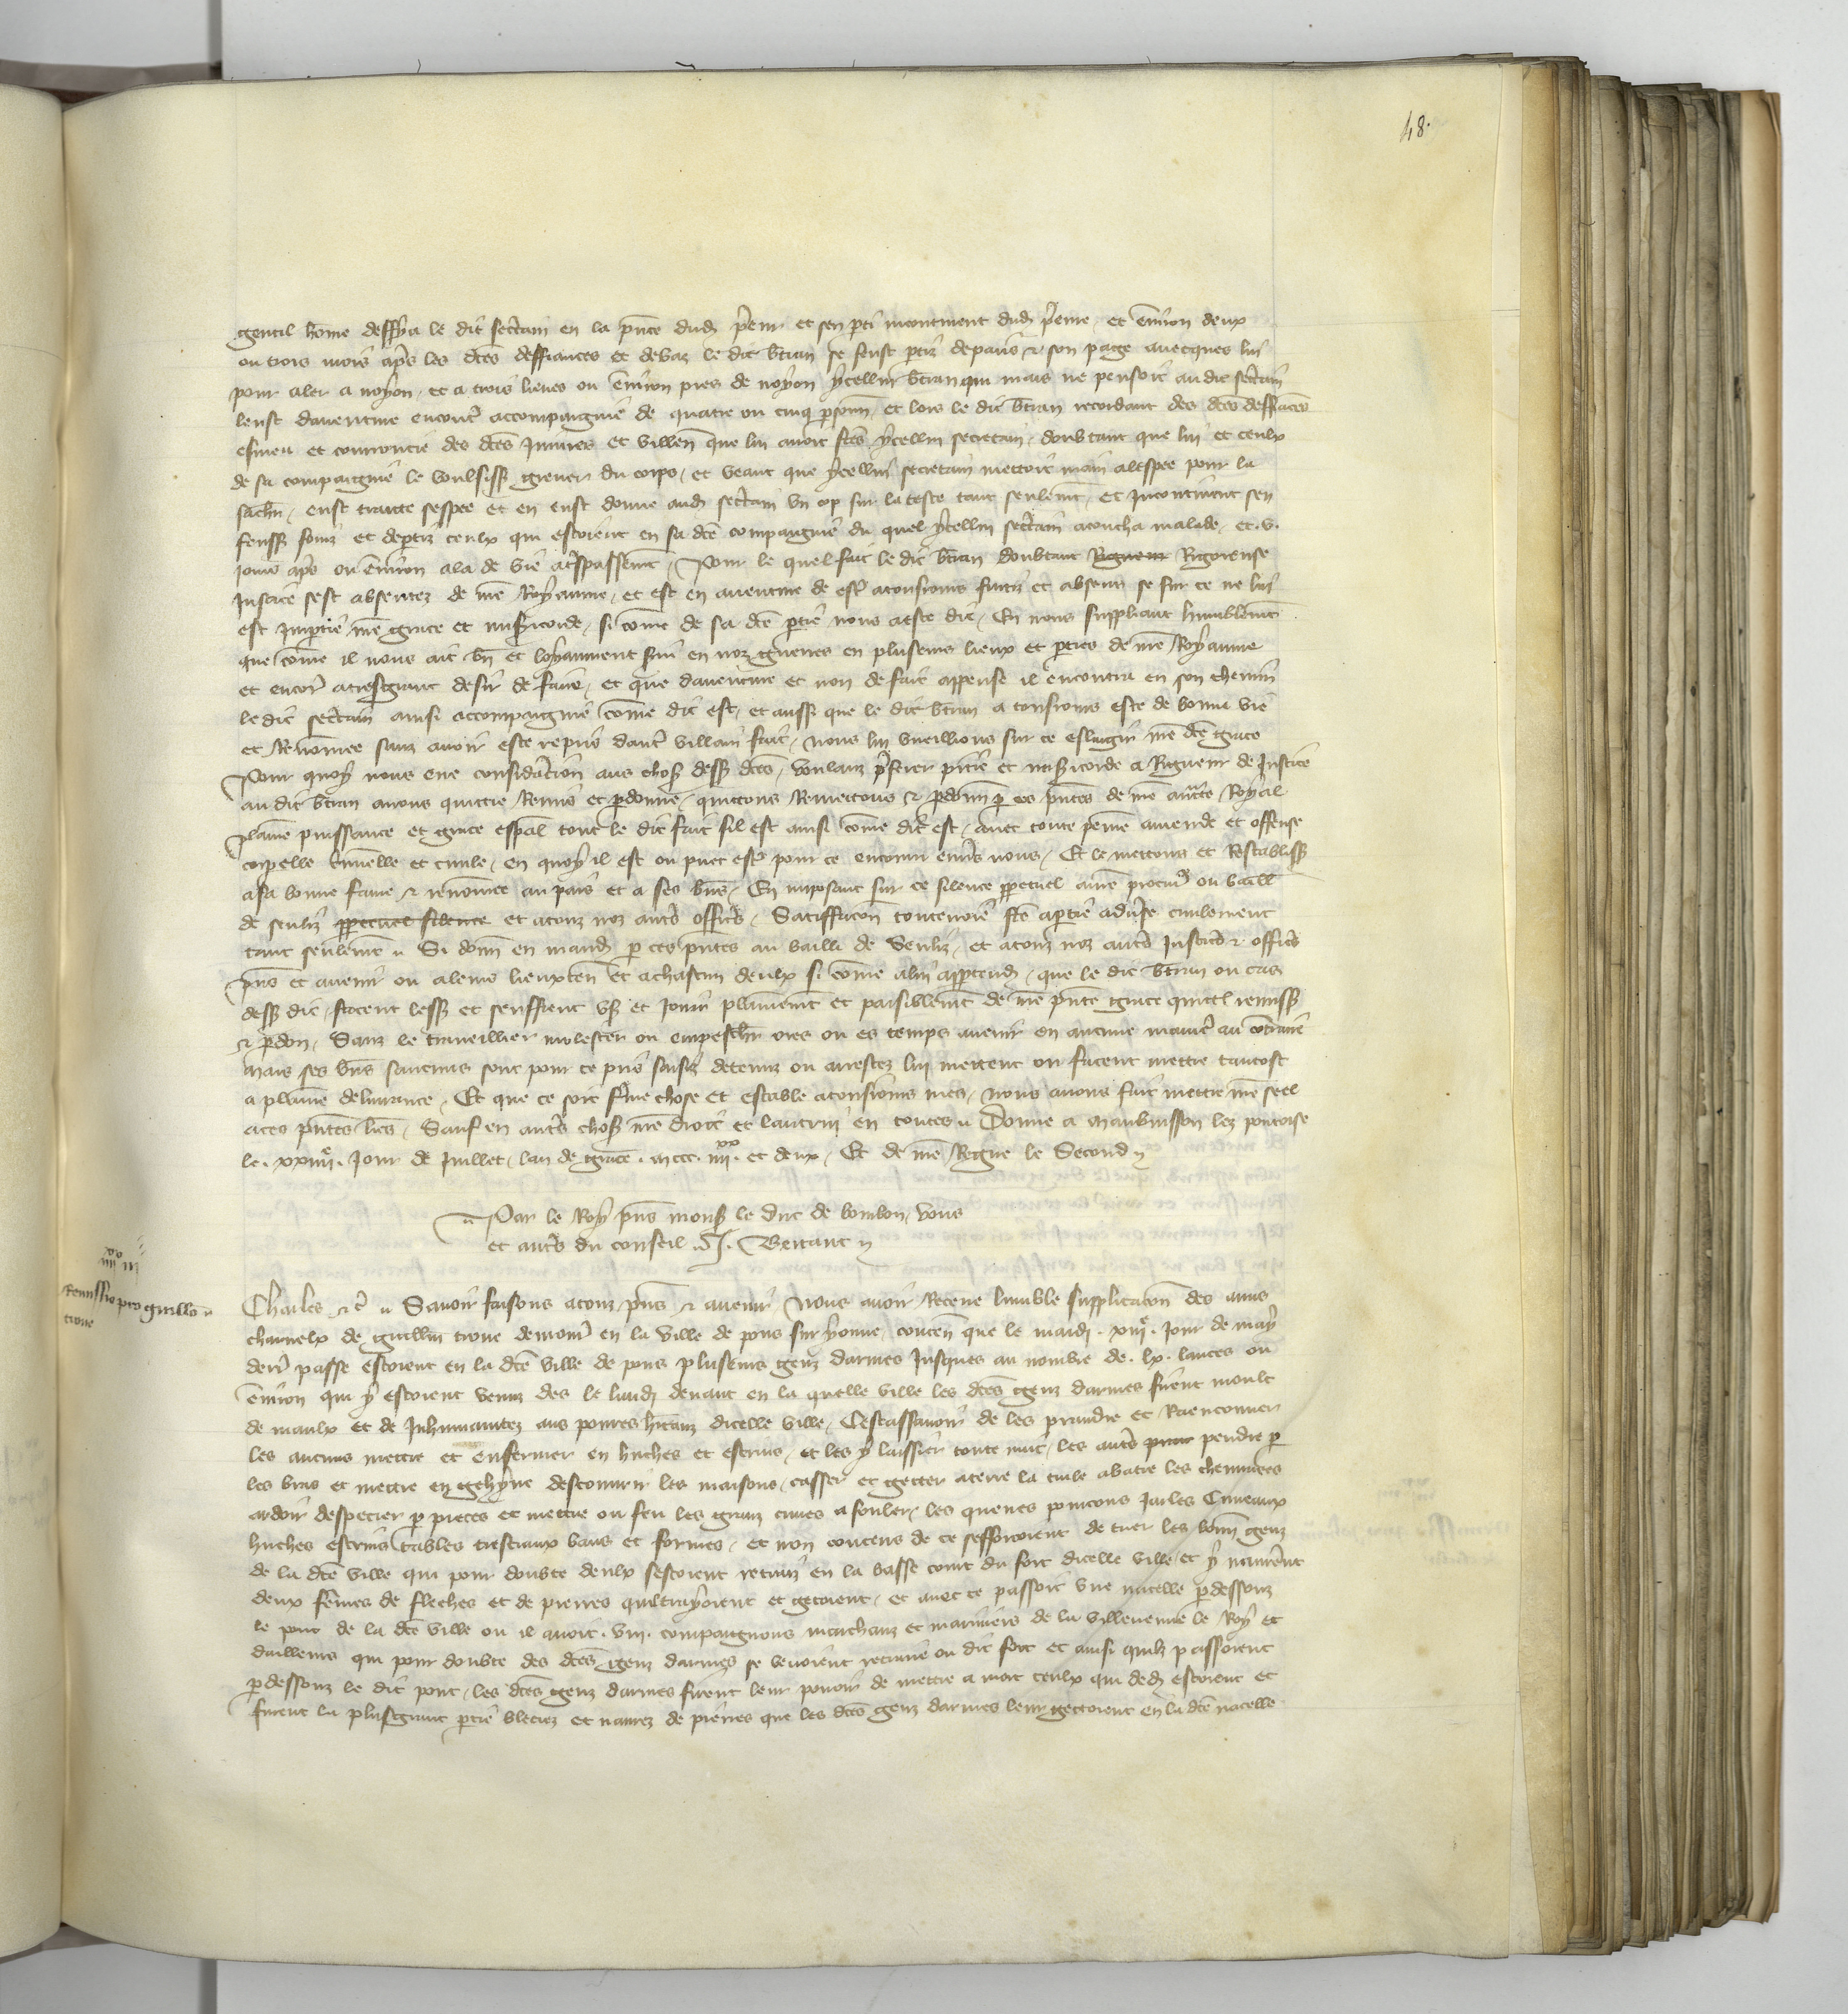 48.
gentil home deffya le dit sectain en la pnce dud pere et sen pti incontinent dud et environ deux
ou trois mois aps les dces deffiances et debaz le dit btran se feust ptiz de paris & son page avecques lui
pour aler a noyon et a trois lieues ou environ pres de noyon ycellui btran qui mais ne pensoit au dit sectain
leust daventure encontre accompaignie de quatre ou cinq psonn et lors le dit btran recordant des dces deffiances
esmeu et courroucie des dces Iniures et villen que lui avoit fces ycellui secretain doubtant que lui et ceulx
de sa compaignie le voulsiss grever du corps et veant que ycellui secretain mettoit main a lespee pour la
sachr eust traitte sespee et en eust donne aud sectain un cop sur la teste tant seulemt et Incontinent sen
feuss fouiz et deptiz ceulx qui estoient en sa dce compaignie du quel ycellui sectain acoucha malade et v.
Jours aps ou environ ala de vie a trespassemt Pour le quel fait le dit btran doubtant Rigueur Rigoreuse
Justice sest absentez de nre Royaume et est en aventure de estre a tousiours fuitiz et absens se sur ce ne lui
est Impartie nre grace et misericorde si come de sa dce ptie nous a este dit En nous suppliant humblemt
que come il nous ait bn et loyaument servi en noz guerres en pluseurs lieux et pties de nre Royaume
et encore a tresgrant desir de faire et que daventure et non de fait appense il encontra en son chemin
le dit sectain ainsi accompaignie come dit est et aussi que le dit btran a tousiours este de bonne vie
et Renomee sanz avoir este repris dautre villain fait nous lui vueillions sur ce eslargir nre dce grace
Pour quoy nous eue consideration aus chos dess dces voulanz pferer pitie et misericorde a Rigueur de Justice
au dit btran avons quittie Remis et pdonne quittons Remettons & pdonns p ces pntes de nre aucte Royal
plaine puissance et grace espal tout le dit fait sil est ainsi come dit est avec toute peine amende et offense
corpelle criminelle et civile en quoy il est ou puet estre pour ce encouru envers nous Et le mettons et Restabliss
a sa bonne fame & renomee au pais et a ses bns En imposant sur ce silence ppetuel a nre procur ou baill
de senliz ppetuel silence et a touz noz autres officrs Satiffacon toutevoie fce a ptie adverse civilement
tant seulemt Si donn en mand p ces pntes au bailli de Senliz et a touz noz autres Justicrs & officrs
pns et avenir ou a leurs lieuxten et a chascun deulx si come a lui apptendr que le dit btran ou cas
dess dit facent less et seuffrent us et Jouir plainemt et paisiblemt de nre pnte grace quitt remiss
& pdon Sanz le traveillier molester ou empeschr ores ou es temps avenir en aucune maniere au contraire
Mais ses bns saucuns sont pour ce pris saisiz detenuz ou arrestez lui mettent ou facent mettre tantost
a plaine delivrance Et que ce soit ferme chose et estable a tousiours mes nous avons fait mettre nre seel
a ces pntes lres Sauf en autres chos nre droit et lautrui en toutes Donne a Maubuisson lez pontoise
le. xxiiiie. Jour de Juillet lan de grace. mccc. iiiixx. et deux Et de nre Regne le Second
Par le Roy pns mons le duc de bourbon vous
et autres du conseil. J. Bertaut
iiiixx iii
Remissio pro guillo
trone
Charles &c Savoir faisons a touz pns & avenir Nous avoir Receue lumble supplicacon des amis
charnelx de guillin trone demour en la ville de pons sur yonne conten que le mardi. xiiie. Jour de may
derr passe estoient en la dce ville de pons pluseurs genz darmes Jusques au nombre de. lx. lances ou
environ qui y estoient venuz des le lundi devant en la quelle ville les dces genz darmes firent moult
de maulx et de Inhumanitez aus povres hitanz dicelle ville Cestassavoir de les prandre et Raenconner
les aucuns mettre et enfermer en huches et escrins et les y laissier toute nuit les autres pendre p
les bras et mettre en gehyne descouvrir les maisons casser et getter a terre la tuile abatre les cheminees
ardoir despecier p pieces et mettre ou feu les granz cuves a fouler les queues poincons Jarles Cuveaux
huches escrins tables tresteaux bans et formes et non contens de ce sefforcoient de tuer les bonn genz
de la dce ville qui pour doubte deulx sestoient retraiz en la basse court du fort dicelle ville et y navrerent
deux femes de fleches et de pierres quil trayoient et getoient et avec ce passoit une nacelle pdessouz
le pont de la dce ville ou il avoit. viii. compaignons marchans et mariniers de la villeneuve le Roy et
dailleurs qui pour doubte des dces genz darmes se venoient retraire ou dit fort et ainsi quilz passoient
pdessouz le dit pont les dces genz darmes firent leur povoir de mettre a mort ceulx qui dedens estoient et
furent la plusgrant ptie bleciez et navrez de pierres que les dces genz darmes leur gettoient en la dce nacelle